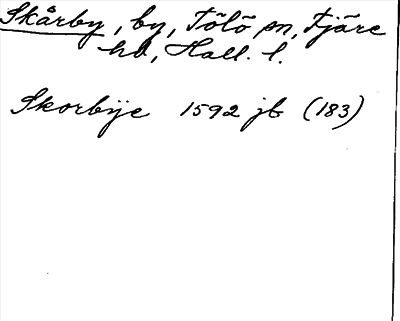 Skårby, by, Tölö sn, Fjäre
hd, Hall. l.
Skorbije 1592 jb (183)